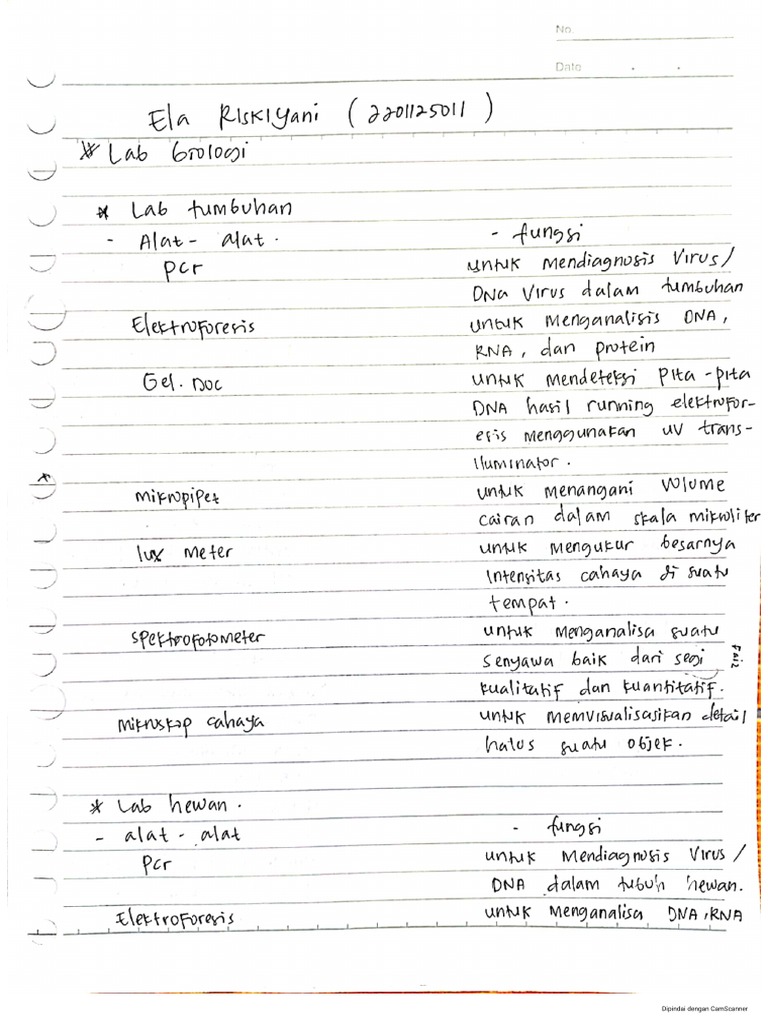 No.
Date . .
Ela RIskiyani (2201125011)
* Lab biologi
* Lab tumbuhan
- Alat - alat . - fungsi
pcr untuk mendiagnosis Virus /
DNA Virus dalam tumbuhan
Elektroforesis untuk menganalisis DNA,
RNA, dan protein
Gel. Doc untuk mendeteksi pita - pita
DNA hasil running elektrofor-
esis menggunakan uv trans-
Iluminator .
mikropipet untuk menangani volume
cairan dalam skala mikroliter
lux meter untuk mengukur besarnya
Intensitas cahaya di suatu
tempat .
spektrofotometer untuk menganalisa suatu
senyawa baik dari segi
kualitatif dan kuantitatif.
mikroskop cahaya untuk memvisualisasikan detail
halus suatu objek .
* Lab hewan .
- alat - alat - fungsi
pcr untuk Mendiagnosis Virus /
DNA dalam tubuh hewan.
Elektroforesis untuk menganalisa DNA, RNA
Dipindai dengan CamScanner